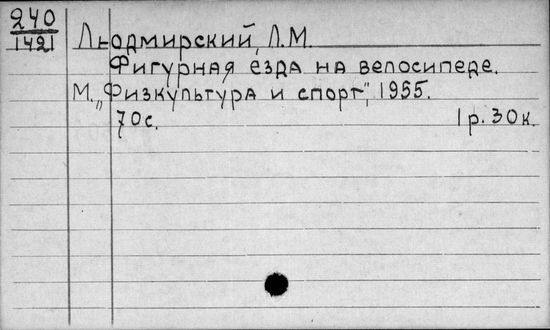 240
1421
Людмирский, Л.М.
Фигурная езда на велосипеде.
М. „Физкультура и спорт", 1955.
70с. 1р. 30к.